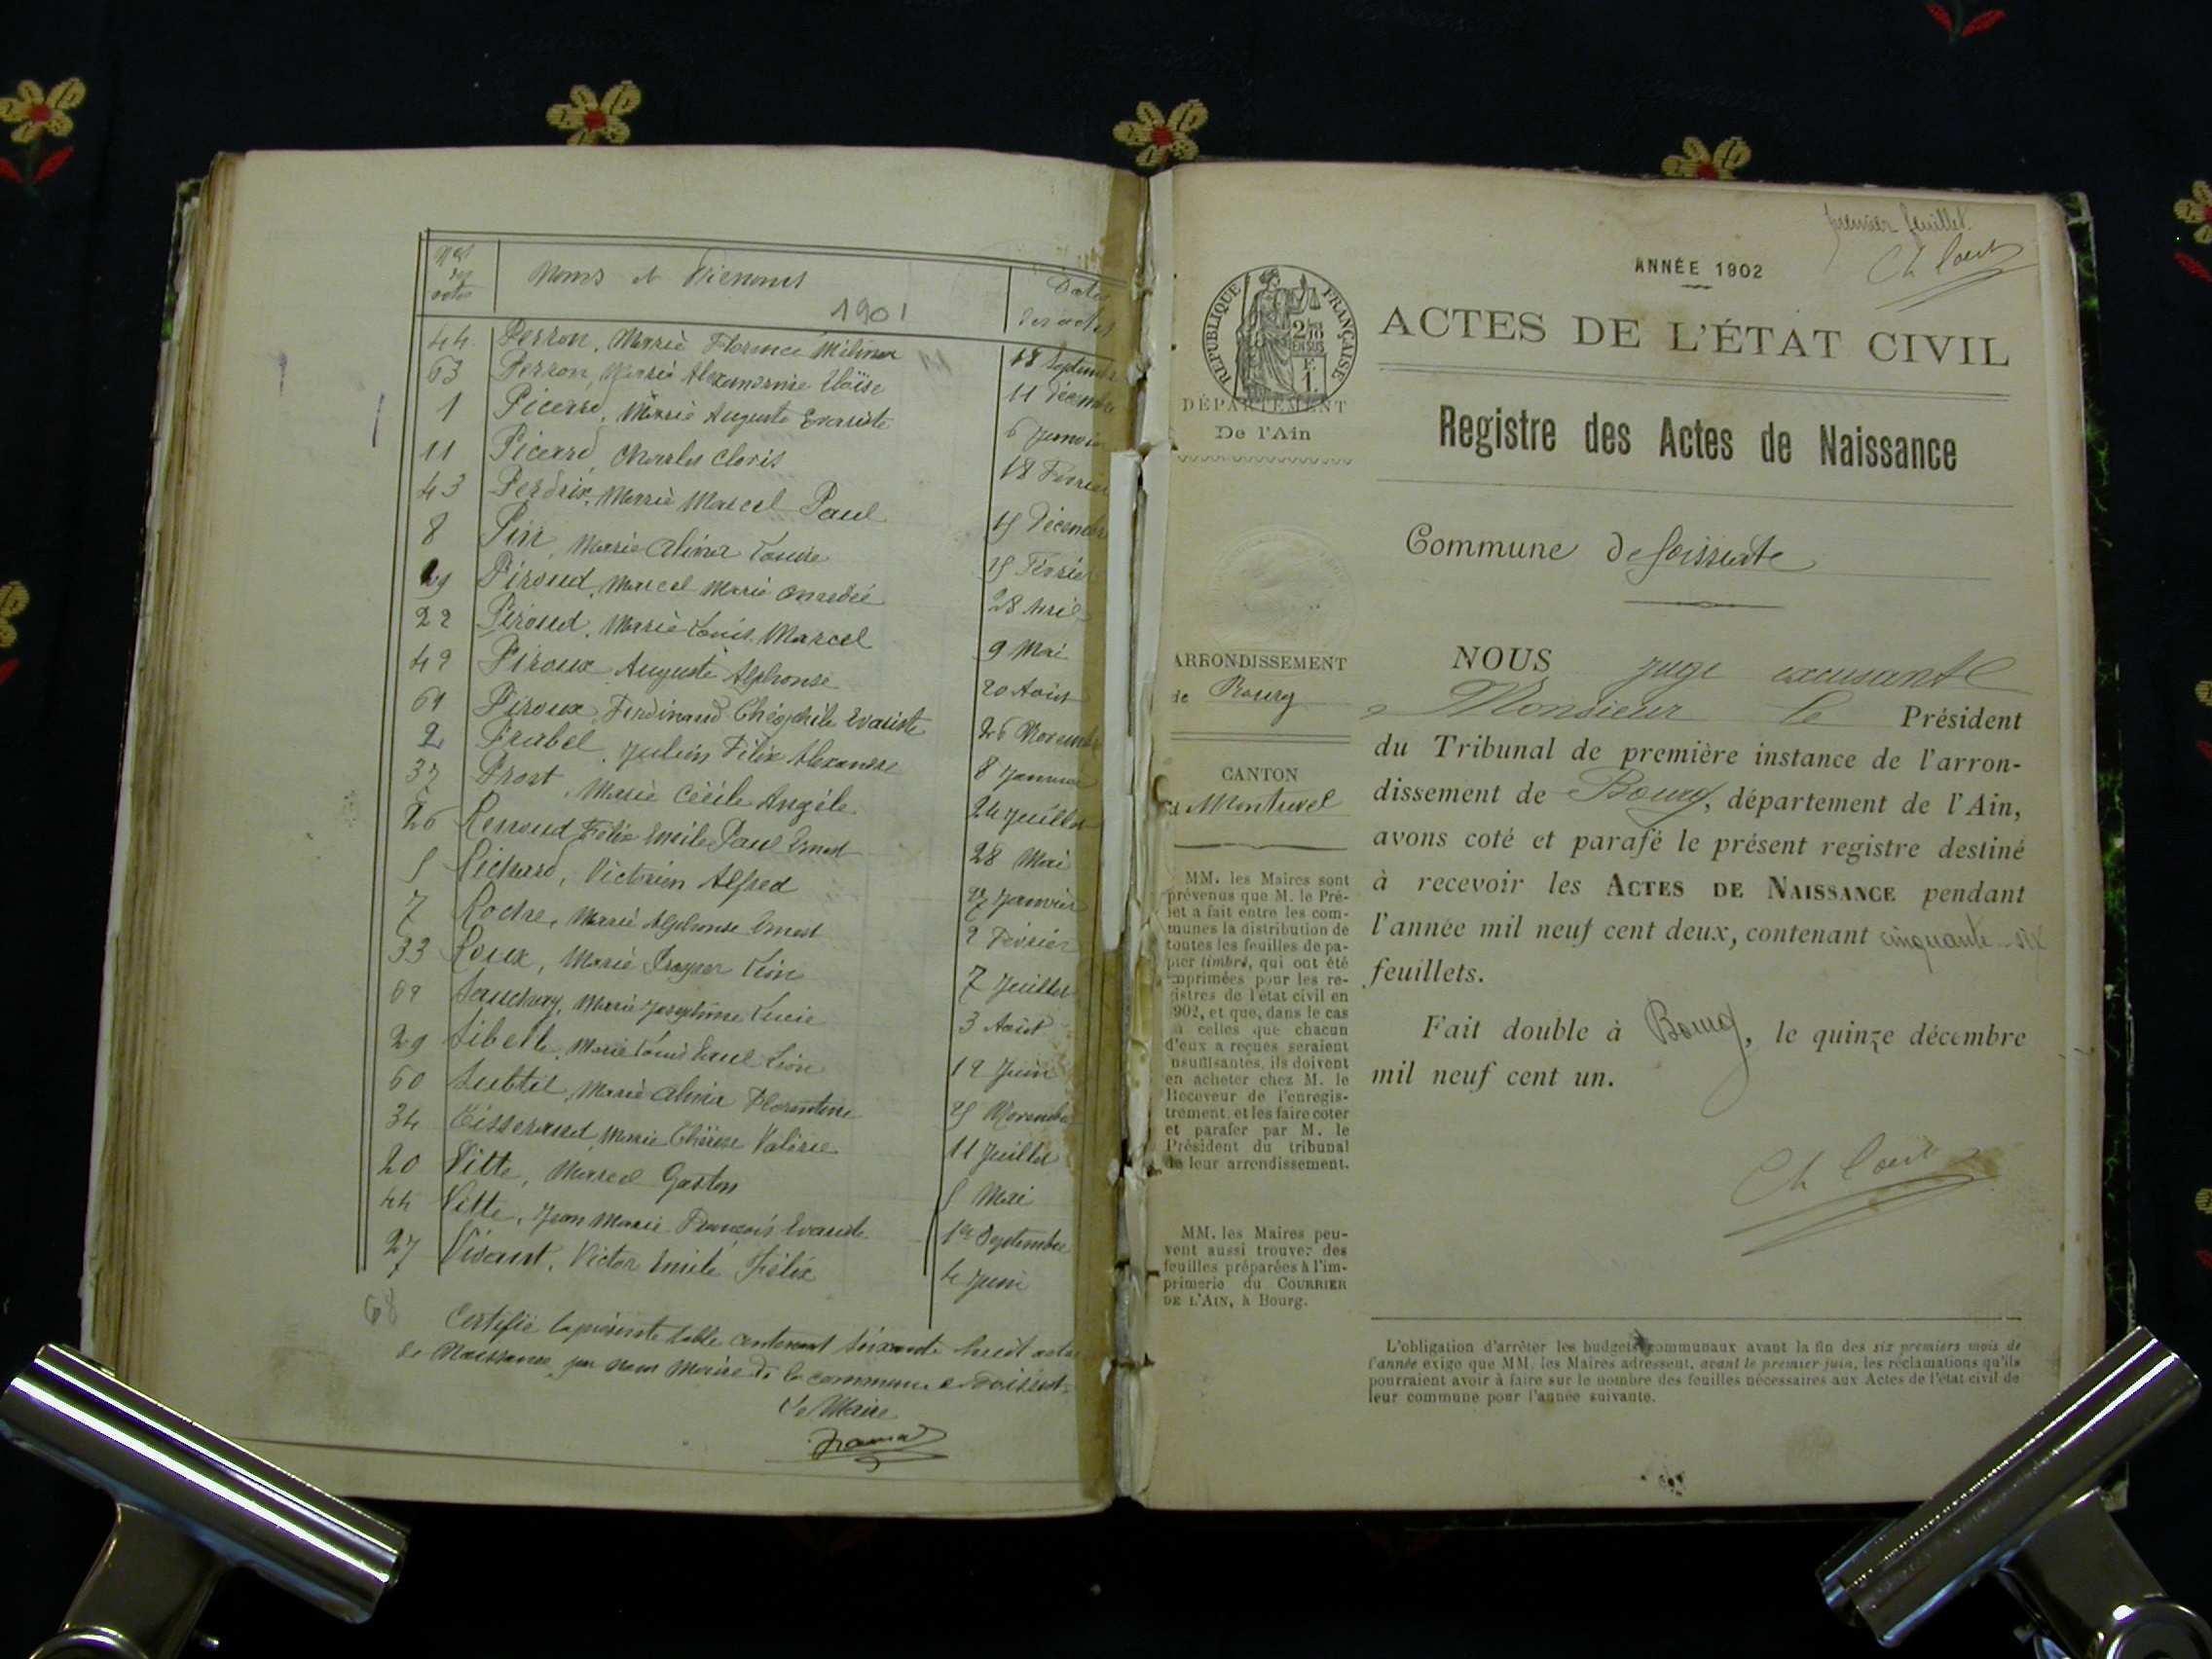 Nos des actes Noms et Prénoms Dates des actes
1901
44 Perron, Marie Florence Mélina 18 Septembre
63 Perron, Marie Alexandrine Eloïse 11 Décembre
1 Picard, Marie Auguste Evariste 6 Janvier
11 Picard, Charles Cloris 18 Février
43 Perdrix, Marie Marcel Paul 15 Décembre
8 Pin, Marie Alina Louise 15 Février
Piroud, Marcel Marie Amédée 28 Avril
22 Piroud, Marie Louis Marcel 9 Mai
42 Piroux, Auguste Alphonse 20 Août
61 Piroux, Ferdinand Théophile Evariste 26 Novembre
2 Prabel, Julien Félix Alexandre 8 Janvier
37 Prost, Marie Cécile Angèle 24 Juillet
26 Renoud Félix Emile Paul Ernest 28 Mai
5 Richard, Victorien Alfred 27 Janvier
7 Roche, Marie Alphonse Ernest 2 Février
33 Roux, Marie Prosper Léon 7 Juillet
Marie Joséphine Lucie 3 Août
29 Sibelle, Marie Louis Paul Léon 12 Juin
60 Subtil, Marie Alina Florentine 25 Novembre
34 Tisserand Marie Thérèse Valérie 11 Juillet
20 Vitte, Marcel Gaston 5 Mai
44 Vitte, Jean Marie François Evariste 1er Septembre
27 Vivant, Victor Emile Félix 4 Juin
68
Certifié la présente table contenant soixante huit actes
de Naissance par nous Maire de la commune de Foissiat
Le Maire
premier feuillet.
ANNÉE 1902
RÉPUBLIQUE FRANÇAISE
2/10 EN SUS
F. 1.
ACTES DE L'ÉTAT CIVIL
DÉPARTEMENT
De l'Ain
Registre des Actes de Naissance
Commune de Foissiat
ARRONDISSEMENT
de Bourg
CANTON
de Montrevel
MM. les Maires sont
prévenus que M. le Pré-
fet a fait entre les com-
munes la distribution de
toutes les feuilles de pa-
pier timbré, qui ont été
imprimées pour les re-
gistres de l'état civil en
1902, et que, dans le cas
où celles que chacun
d'eux a reçues seraient
insuffisantes, ils doivent
en acheter chez M. le
Receveur de l'enregis-
trement, et les faire coter
et parafer par M. le
Président du tribunal
de leur arrondissement.
MM. les Maires peu-
vent aussi trouver des
feuilles préparées à l'im-
primerie du COURRIER
DE L'AIN, à Bourg.
NOUS juge excusant
Monsieur le Président
du Tribunal de première instance de l'arron-
dissement de Bourg, département de l'Ain,
avons coté et parafé le présent registre destiné
à recevoir les ACTES DE NAISSANCE pendant
l'année mil neuf cent deux, contenant cinquante-six
feuillets.
Fait double à Bourg, le quinze décembre
mil neuf cent un.
L'obligation d'arrêter les budgets communaux avant la fin des six premiers mois de
l'année exige que MM. les Maires adressent, avant le premier juin, les réclamations qu'ils
pourraient avoir à faire sur le nombre des feuilles nécessaires aux Actes de l'état civil de
leur commune pour l'année suivante.